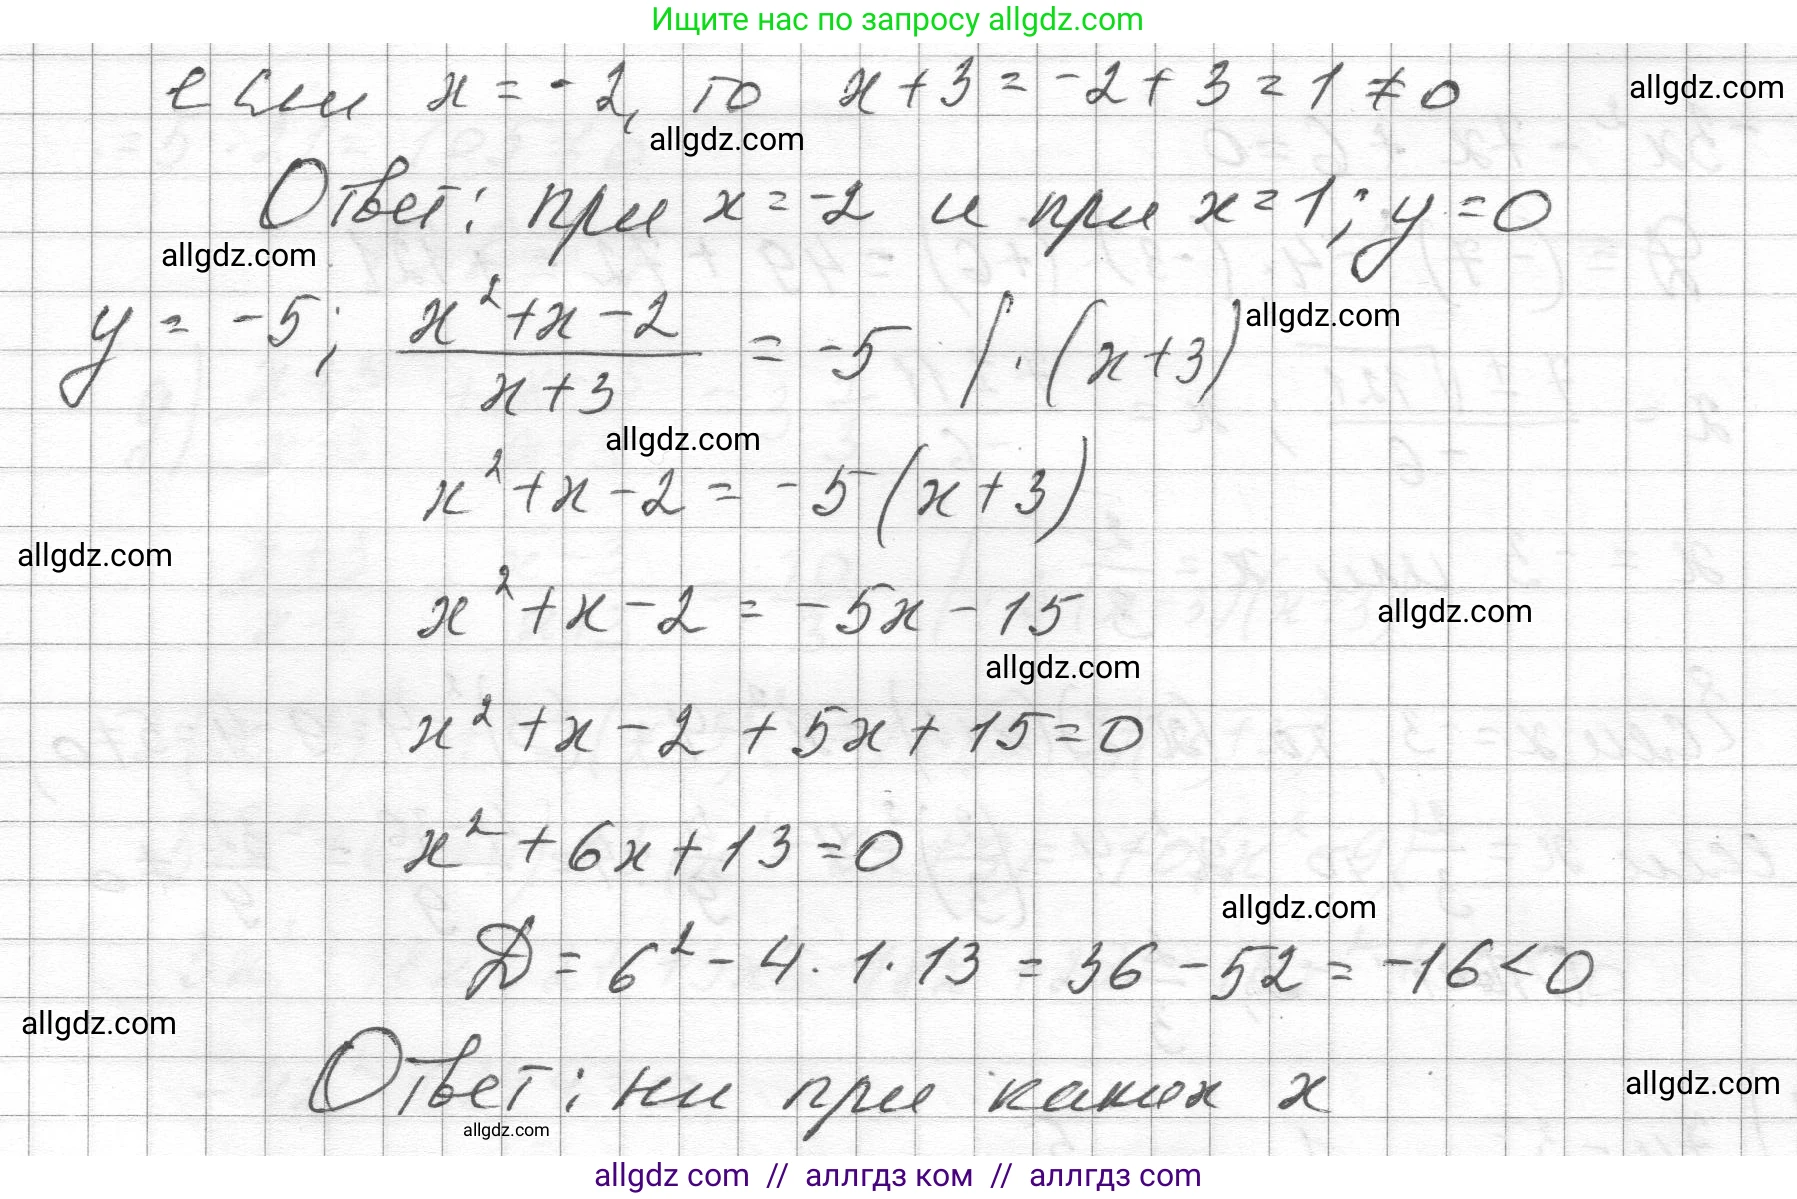 Ищите нас по запросу allgdz.com
если x = -2, то x + 3 = -2 + 3 = 1 ≠ 0
allgdz.com
allgdz.com
Ответ: при x = -2 и при x = 1; y = 0
allgdz.com
y = -5; (x² + x - 2)/(x + 3) = -5 | · (x + 3)
allgdz.com
allgdz.com
x² + x - 2 = -5 (x + 3)
allgdz.com
x² + x - 2 = -5x - 15
allgdz.com
allgdz.com
x² + x - 2 + 5x + 15 = 0
x² + 6x + 13 = 0
allgdz.com
D = 6² - 4 · 1 · 13 = 36 - 52 = -16 < 0
allgdz.com
Ответ: ни при каких x
allgdz.com
allgdz.com
allgdz com // аллгдз ком // аллгдз com